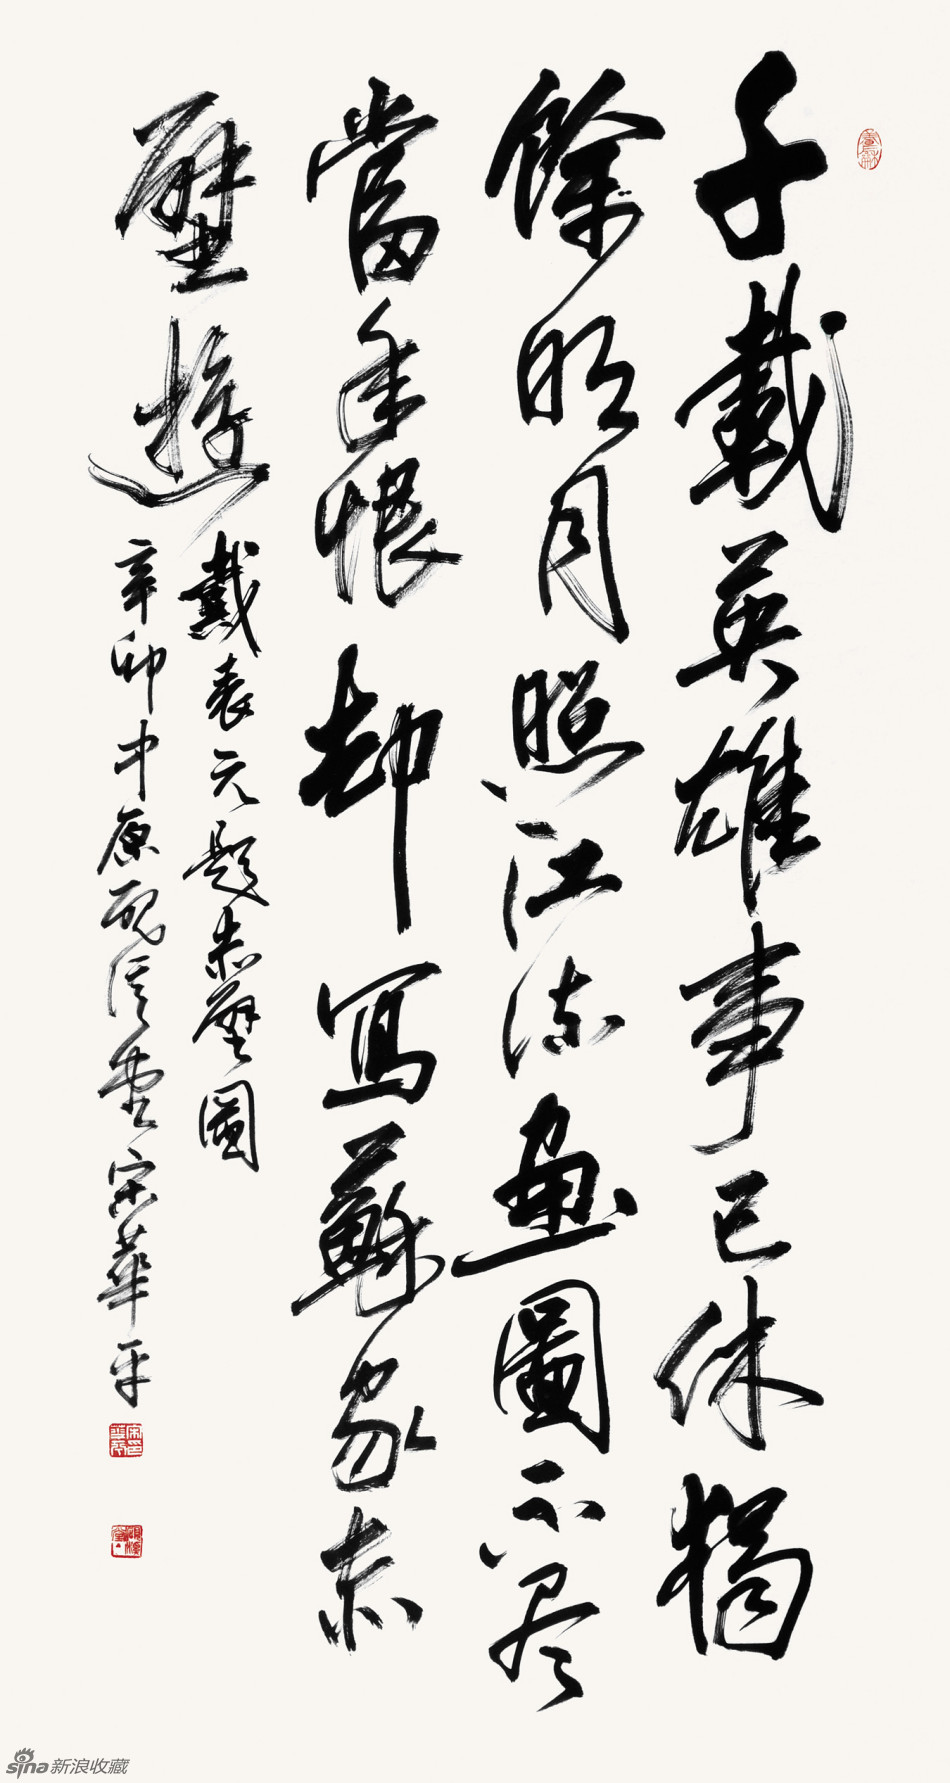 千載英雄事已休獨
餘明月照江流畫圖不尽
當年恨却寫蘇家赤
壁遊
戴表元題赤壁圖
辛卯中原硯堂宋華平
sina新浪收藏